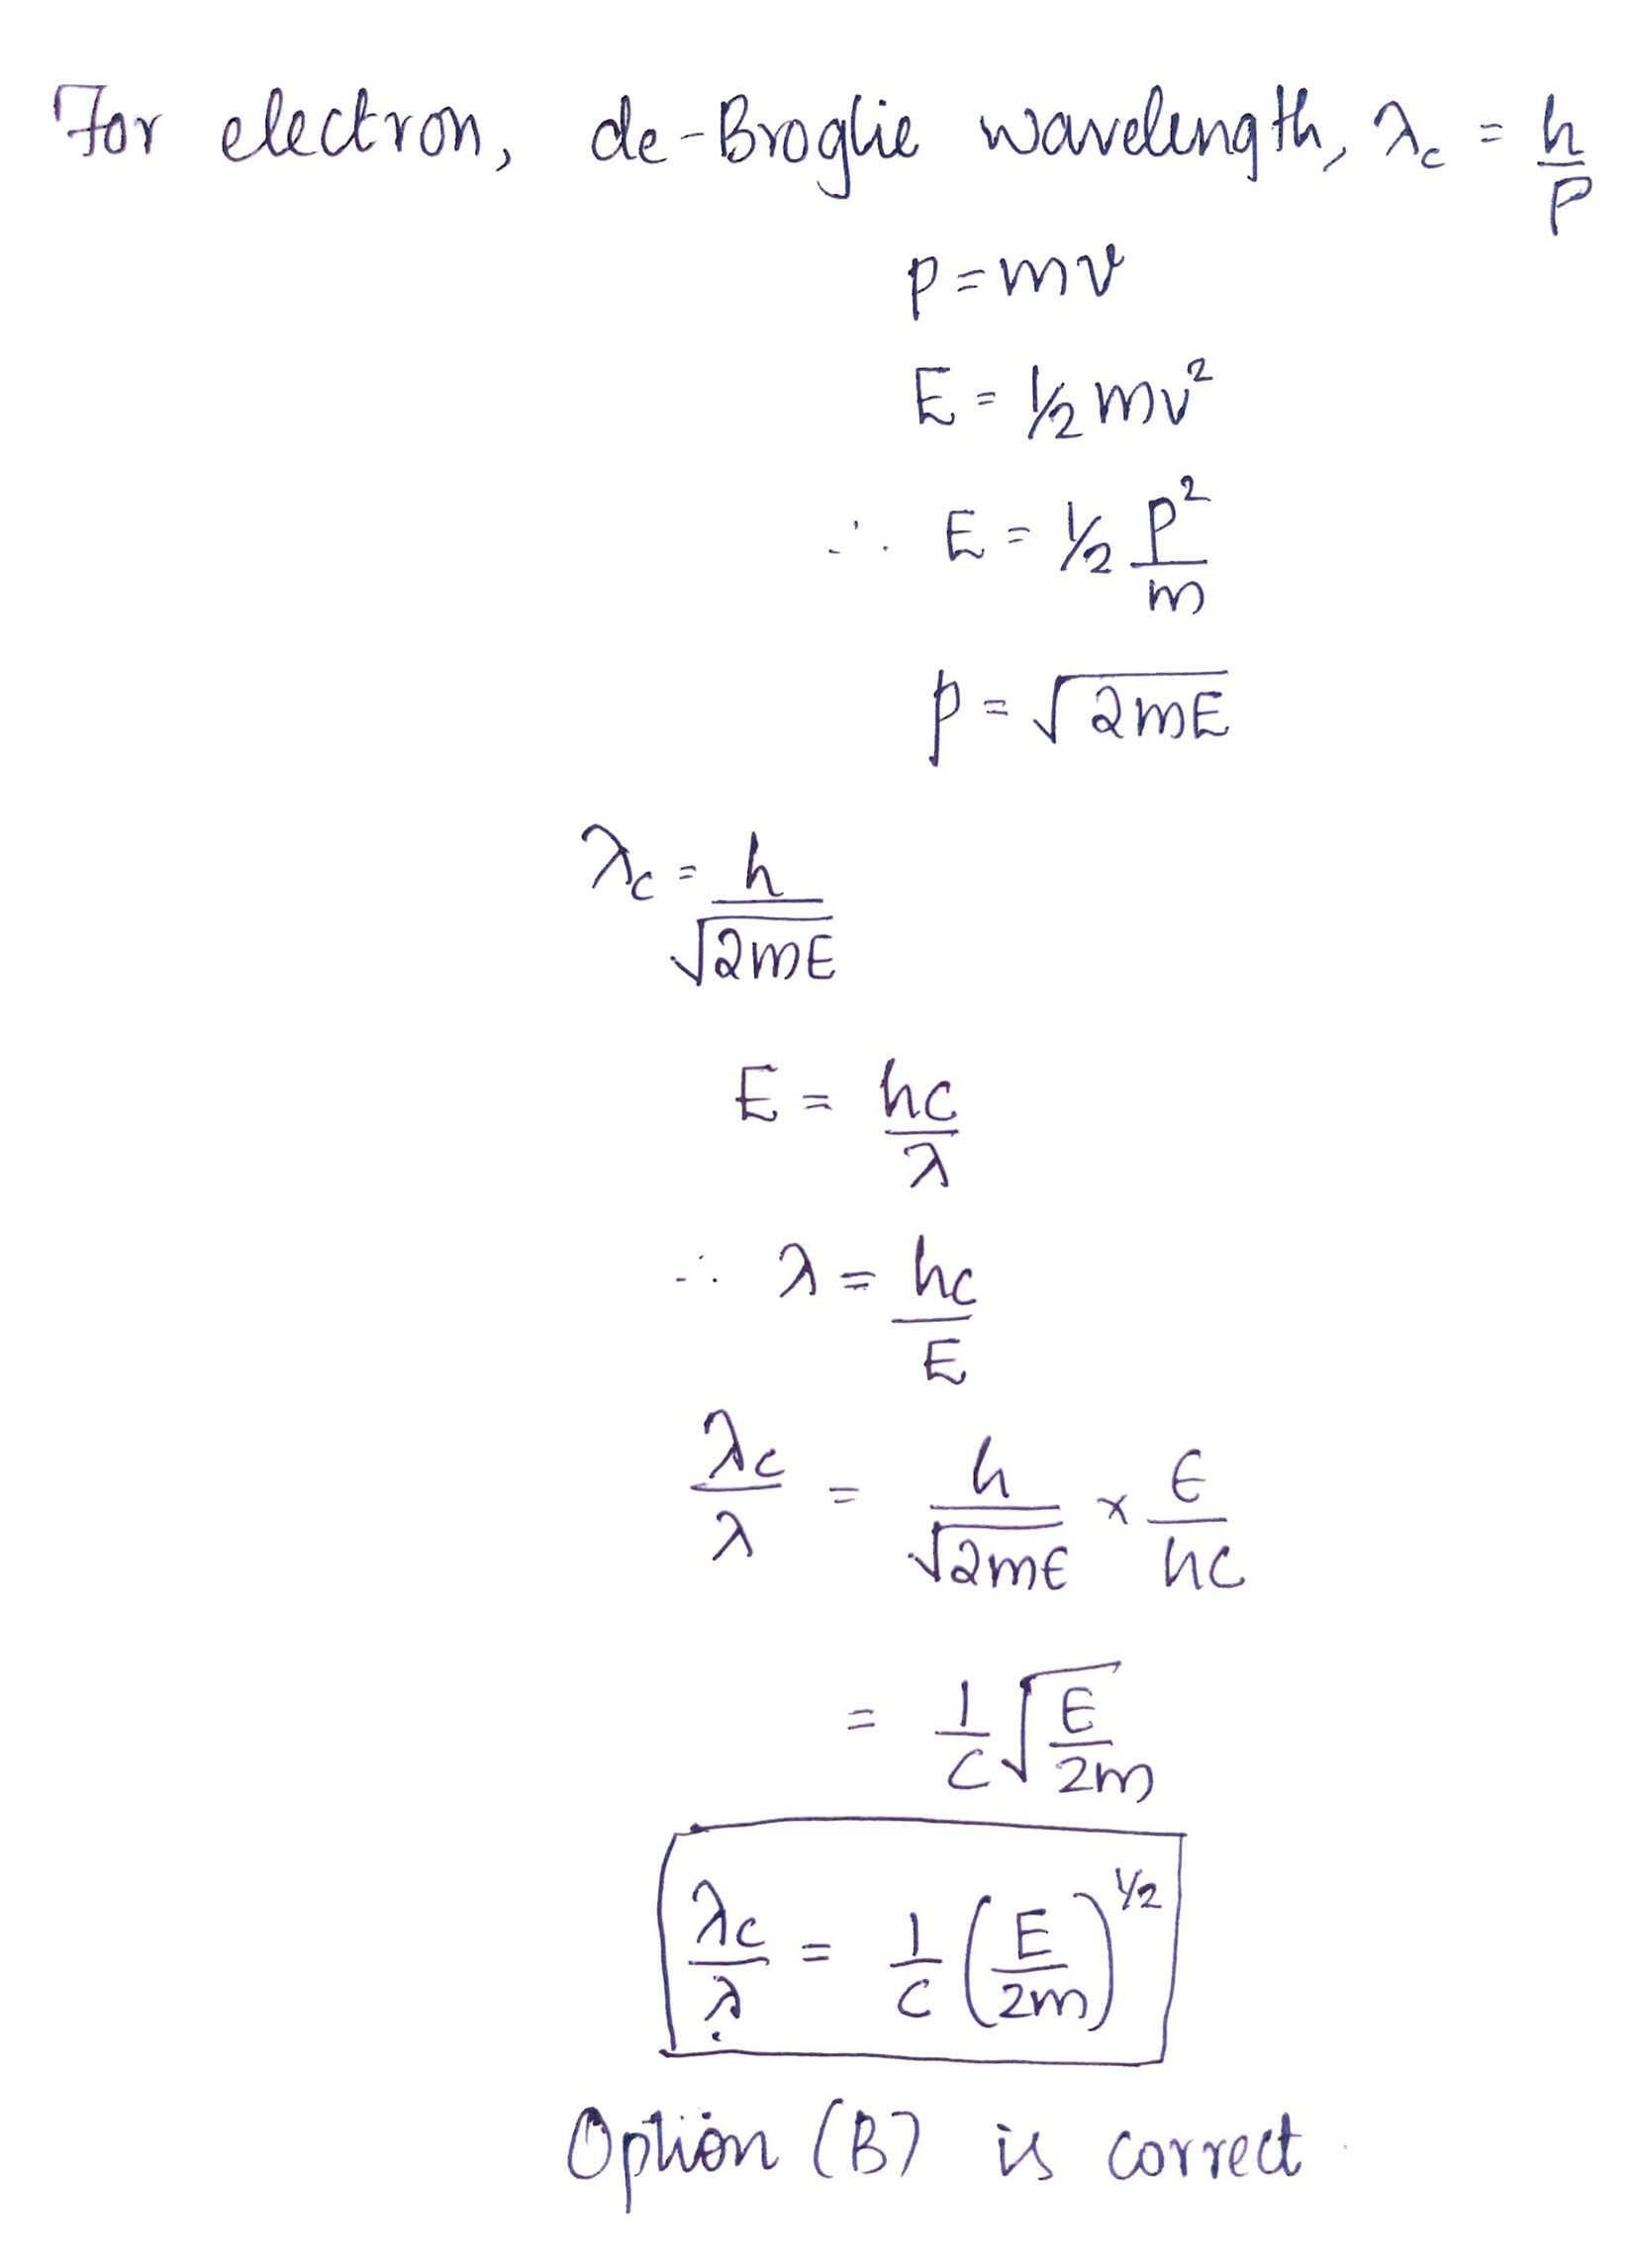 For electron, de-Broglie wavelength, λc = h/P
P = mv
E = 1/2 mv²
∴ E = 1/2 P²/m
p = √2mE
λc = h/√2mE
E = hc/λ
∴ λ = hc/E
λc/λ = h/√2mE × E/hc
= 1/c √E/2m
λc/λ = 1/c (E/2m)^1/2
Option (B) is correct.